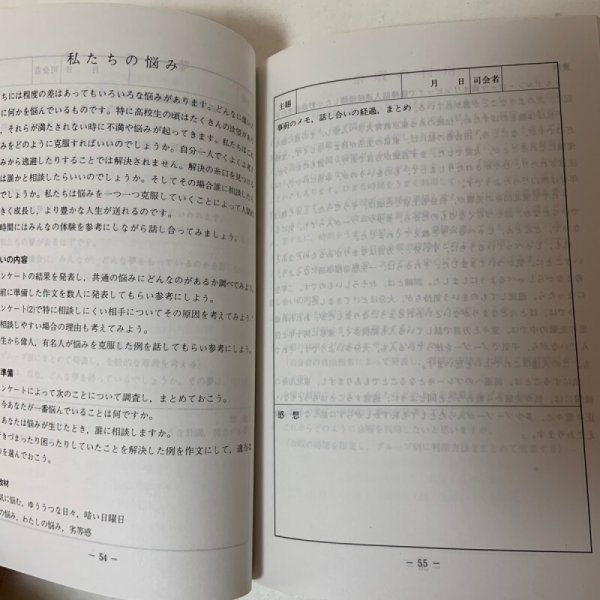 私たちの悩み
ちには程度の差はあってもいろいろな悩みがあります。どんなに
に何かを悩んでいるものです。特に高校生の頃はたくさんの欲望が
、それらが満たされない時に不満や悩みが起ってきます。私たちは
みをどのように克服すればいいのでしょうか。自分一人でくよくよ
みから逃避したりすることでは解決されません。解決の糸口を見つける
は誰かと相談したらいいのでしょうか。そしてその場合誰に相談したら
でしょうか。私たちは悩みを一つ一つ克服していくことによって人間
きく成長し、より豊かな人生が送れるのです。
時間にはみんなの体験を参考にしながら話し合ってみましょう。
いの内容
ンケートの結果を発表し、共通の悩みにどんなのがあるか調べてみよう。
前に準備した作文を数人に発表してもらい参考にしよう。
ンケート(2)で特に相談しにくい相手についてその原因を考えてみよう。
相談しやすい場合の理由も考えてみよう。
生から偉人、有名人が悩みを克服した例を話してもらい参考にしよう。
準備
ンケートによって次のことについて調査し、まとめておこう。
今あなたが一番悩んでいることは何ですか。
あなたは悩みが生じたとき、誰に相談しますか。
行きづまったり困ったりしていたことを解決した例を作文にして、適当な
のを選んでおこう。
教材
気に悩む、ゆううつな日々、暗い日曜日
の悩み、わたしの悩み、劣等感
― 54 ―
主題 月 日 司会者
事前のメモ、話し合いの経過、まとめ
感想
― 55 ―